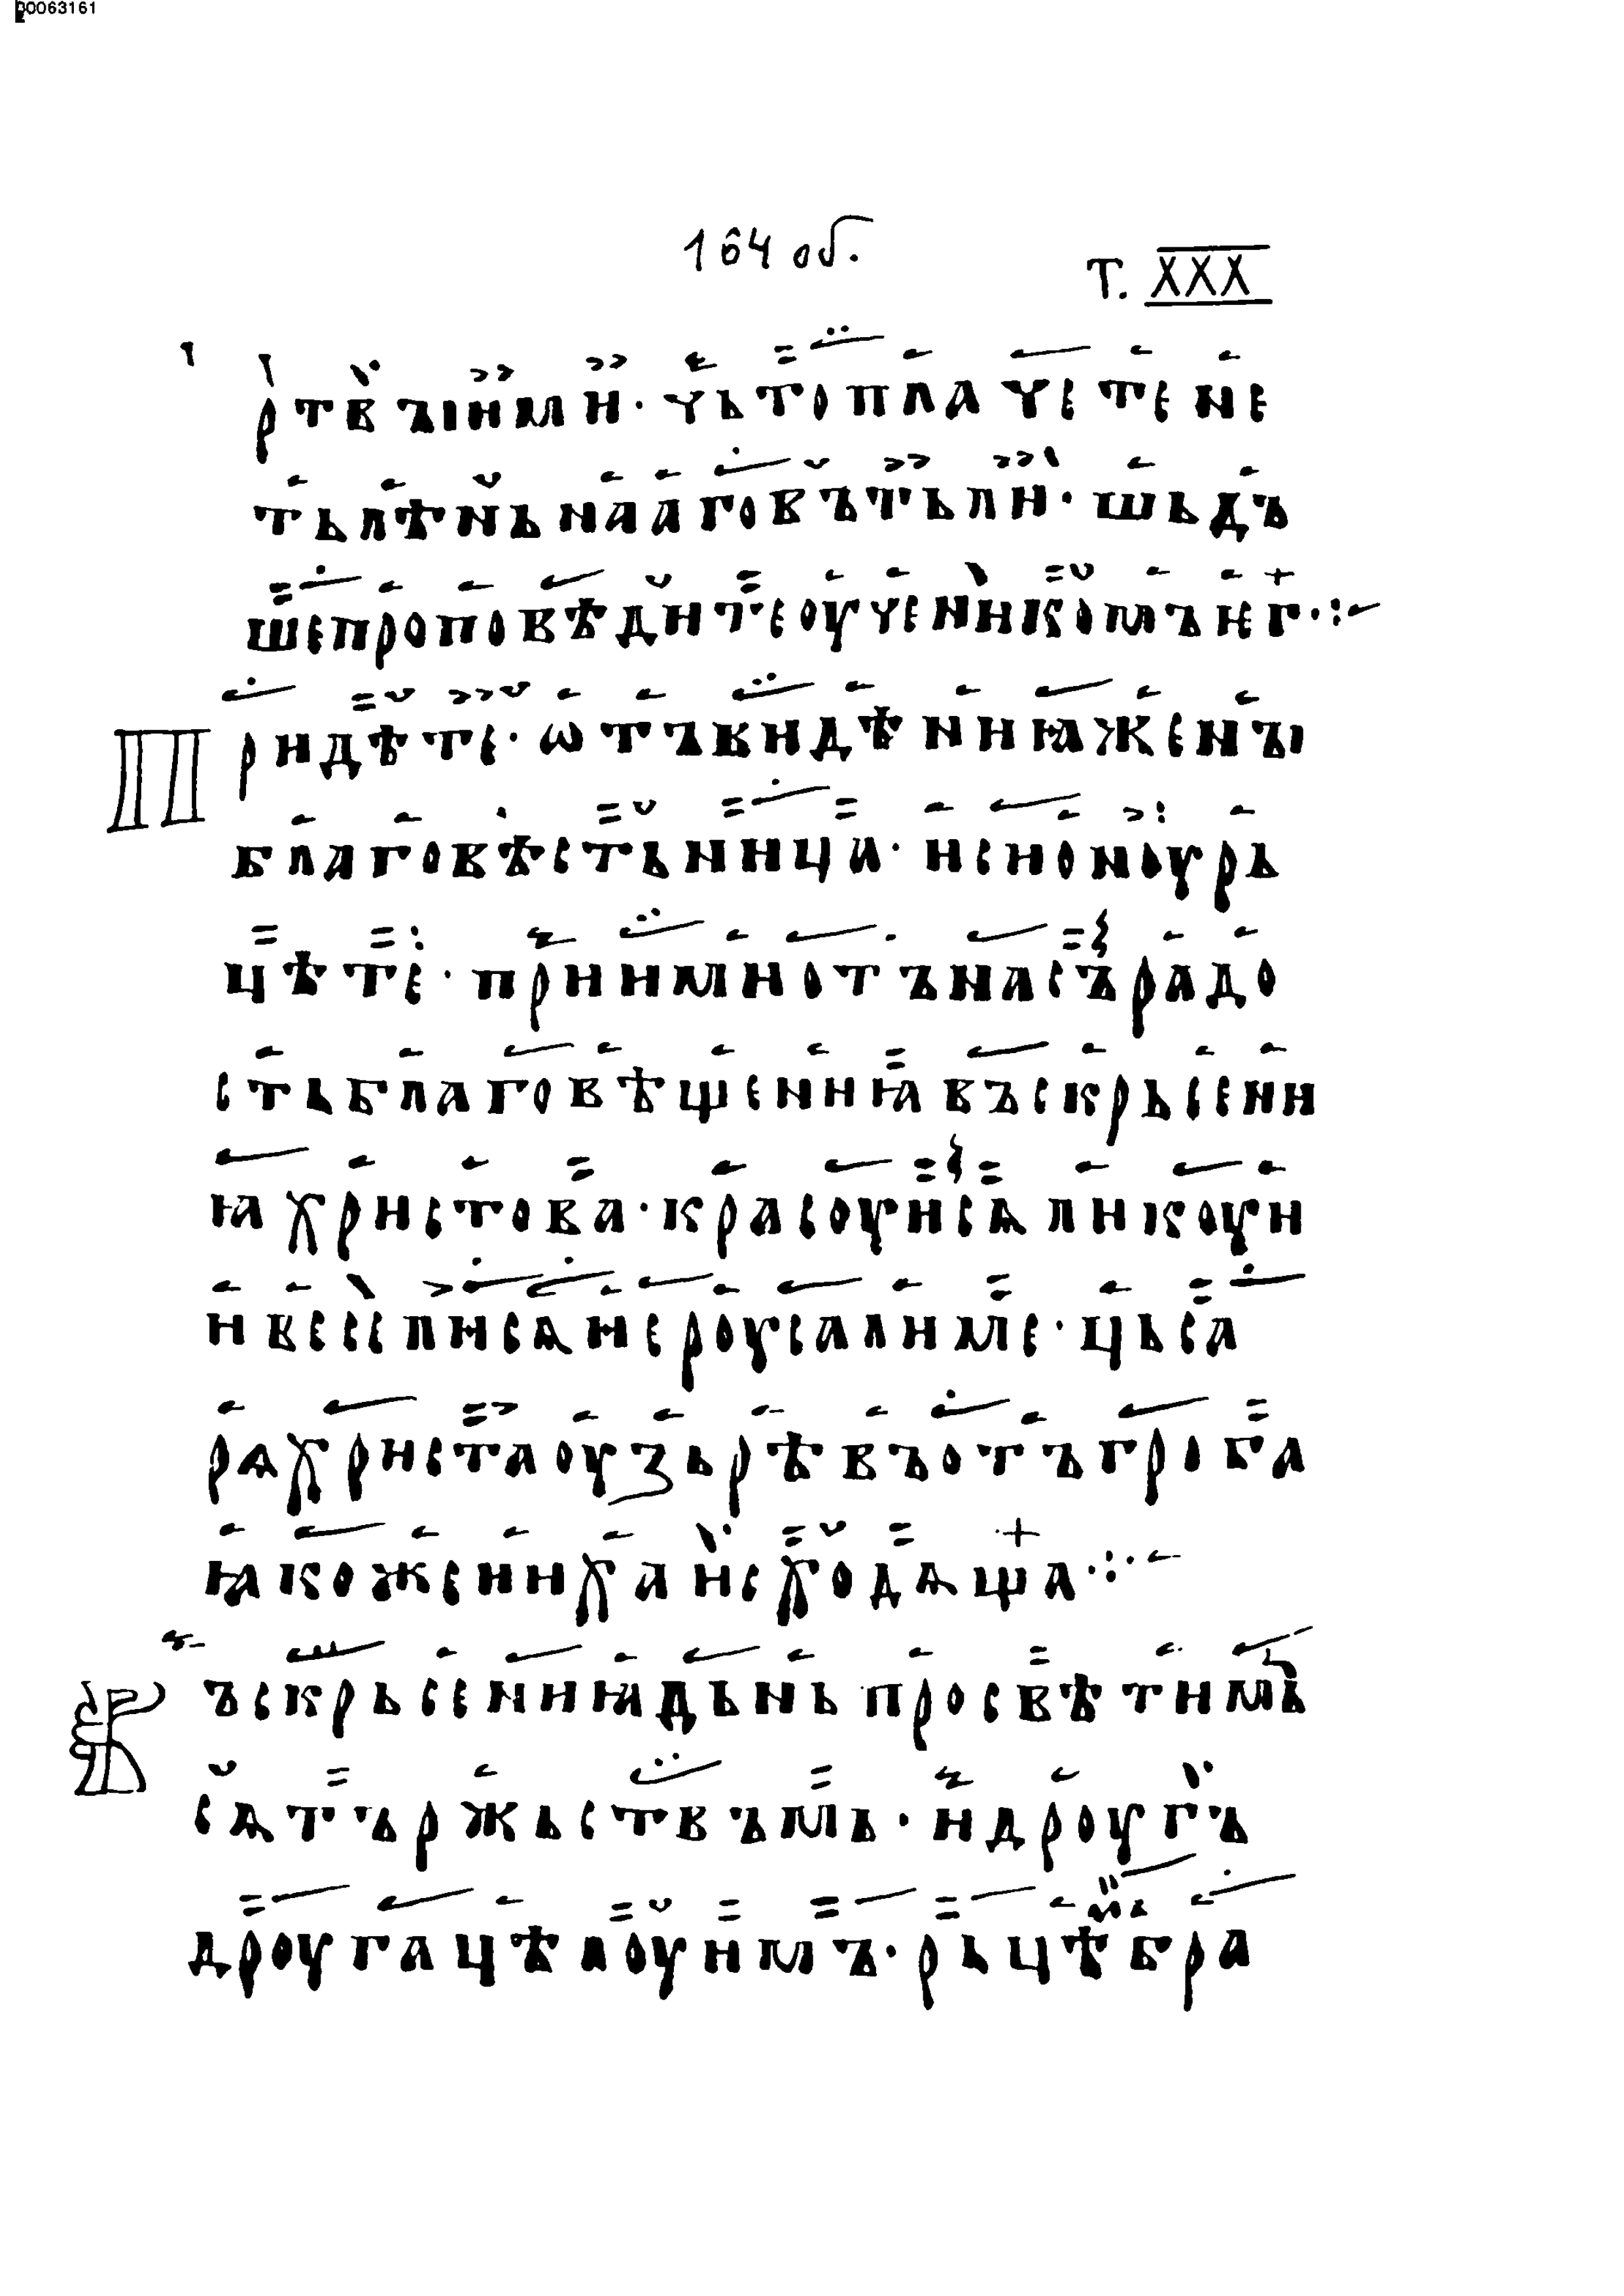 00063161
164 об.
Т. XXX
ртвъіими · чьтоплачетене
тьлѣньнааговътьли · шьдъ
шепроповѣдитеоученикомъѥг · :
Придѣте · ѡтъвидѣниꙗжены
благовѣстьница · исиоиоурь
цѣте · приимиотънасърадо
стьблаговѣщениꙗвъскрьсени
ꙗхристова · красоуисѧликоуи
ивесеслисѧиероусалиме · цьса
рѧхристаоузьрѣвъотъгроба
ꙗкоженихаисходѧща · :
Въскрьсениꙗдьньпросвѣтимъ
сѧтържьствъмь · идроугъ
дроугацѣлоуимъ · рьцѣмъбра